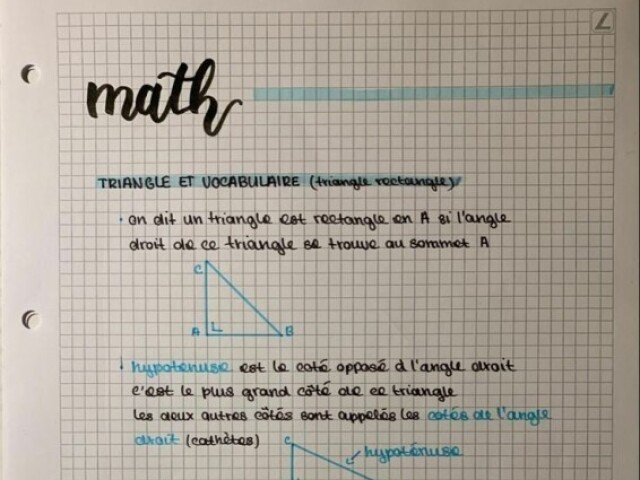 math
TRIANGLE ET VOCABULAIRE (triangle rectangle)
• on dit un triangle est rectangle en A si l'angle
droit de ce triangle se trouve au sommet A
C
A
B
• hypoténuse est le coté opposé à l'angle droit
c'est le plus grand côté de ce triangle
les deux autres côtés sont appelés les cotés de l'angle
droit (cathètes)
C
hypoténuse